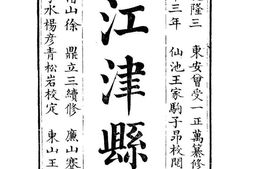 隆三 東安曾受一正萬纂修
三年 仙池王家駒子昂校閱
江津縣
山徐 鼎立三續修 廉山寨
水楊彥青松岩校定 東山王